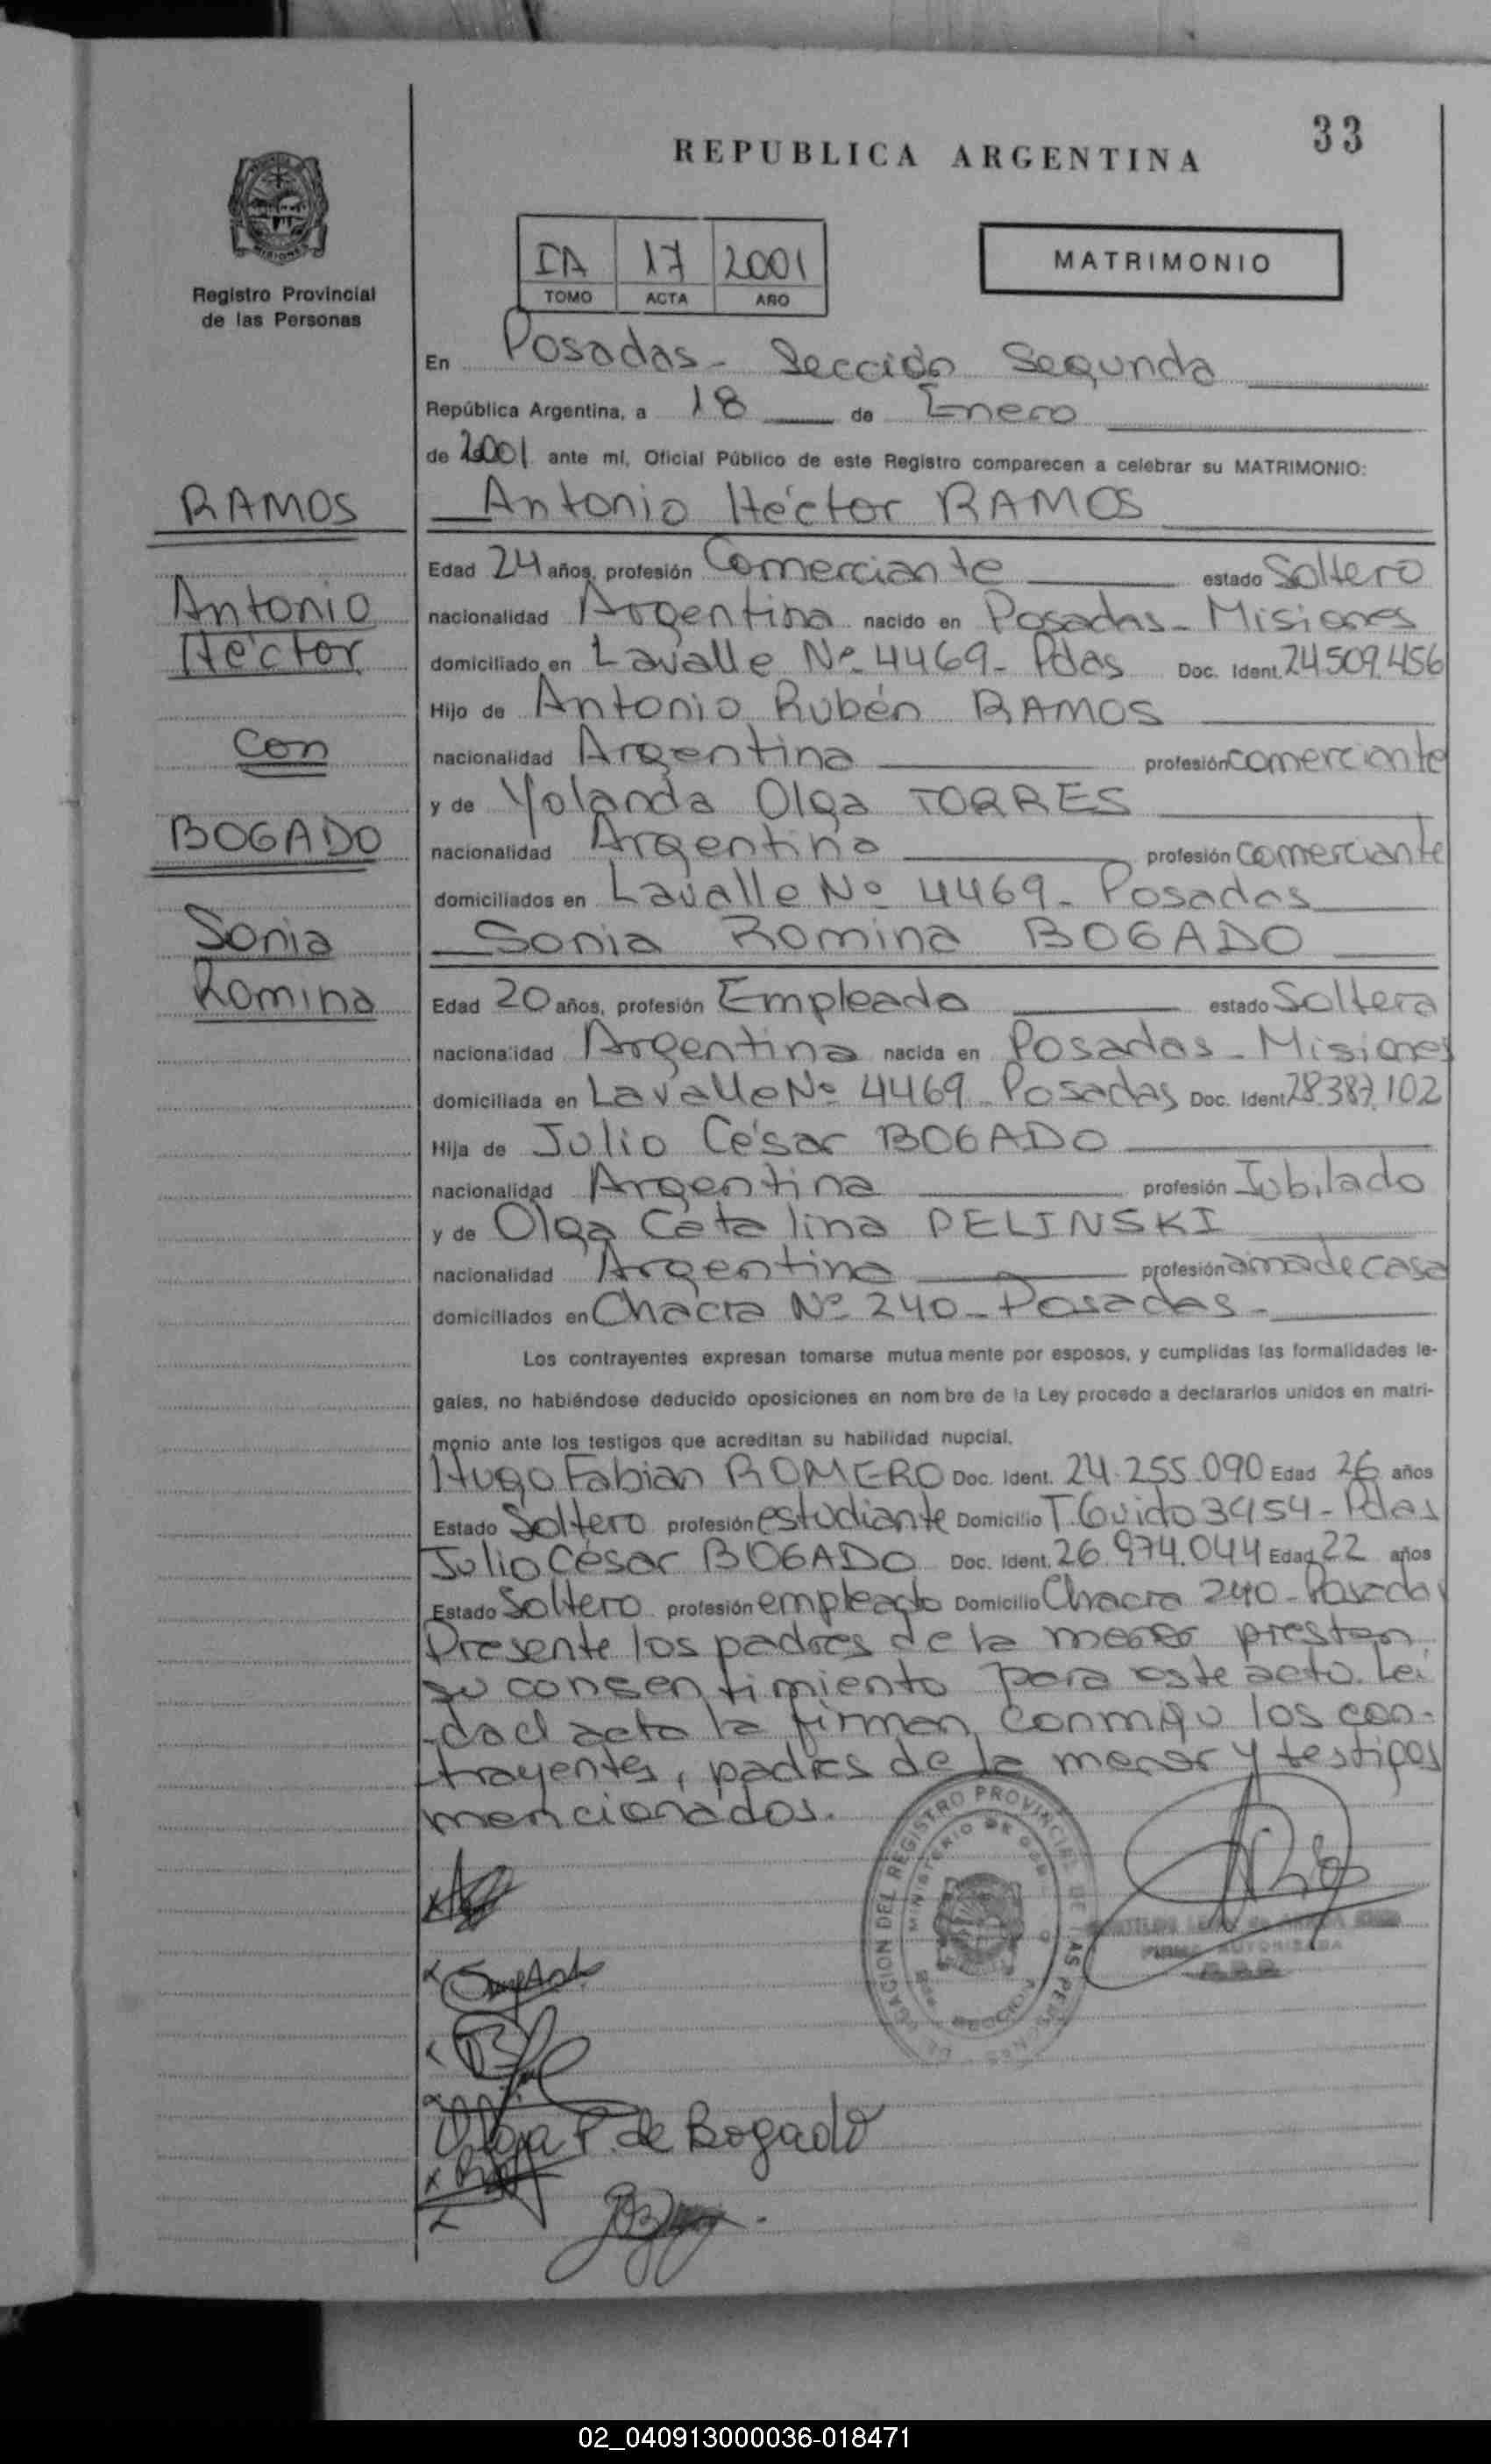 33
REPUBLICA ARGENTINA
MISIONES
Registro Provincial
de las Personas
IA 17 2001
TOMO ACTA AÑO
MATRIMONIO
En Posadas - Sección Segunda
República Argentina, a 18 de Enero
de 2001 ante mí, Oficial Público de este Registro comparecen a celebrar su MATRIMONIO:
RAMOS
Antonio
Héctor
con
BOGADO
Sonia
Romina
Antonio Héctor RAMOS
Edad 24 años, profesión Comerciante estado Soltero
nacionalidad Argentina nacido en Posadas - Misiones
domiciliado en Lavalle Nº 4469 - Pdas Doc. Ident. 24.509.456
Hijo de Antonio Rubén RAMOS
nacionalidad Argentina profesión comerciante
y de Yolanda Olga TORRES
nacionalidad Argentina profesión comerciante
domiciliados en Lavalle Nº 4469 - Posadas
Sonia Romina BOGADO
Edad 20 años, profesión Empleada estado Soltera
nacionalidad Argentina nacida en Posadas - Misiones
domiciliada en Lavalle Nº 4469 - Posadas Doc. Ident 28.387.102
Hija de Julio César BOGADO
nacionalidad Argentina profesión Jubilado
y de Olga Catalina PELINSKI
nacionalidad Argentina profesión ama de casa
domiciliados en Chacra Nº 240 - Posadas -
Los contrayentes expresan tomarse mutua mente por esposos, y cumplidas las formalidades le-
gales, no habiéndose deducido oposiciones en nom bre de la Ley procedo a declararlos unidos en matri-
monio ante los testigos que acreditan su habilidad nupcial.
Hugo Fabian ROMERO Doc. Ident. 24.255.090 Edad 26 años
Estado Soltero profesión estudiante Domicilio T. Guido 3454 - Pdas
Julio César BOGADO Doc. Ident. 26.974.044 Edad 22 años
Estado Soltero profesión empleado Domicilio Chacra 240 - Posadas
Presente los padres de la menor prestan
su consentimiento para este acto. Leí
da el acta la firman conmigo los con-
trayentes, padres de la menor y testigos
mencionados.
DELEGACION DEL REGISTRO PROVINCIAL DE LAS PERSONAS
MINISTERIO DE GOB.
SECCION
FIRMA AUTORIZADA
Olga P. de Bogado
02_040913000036-018471